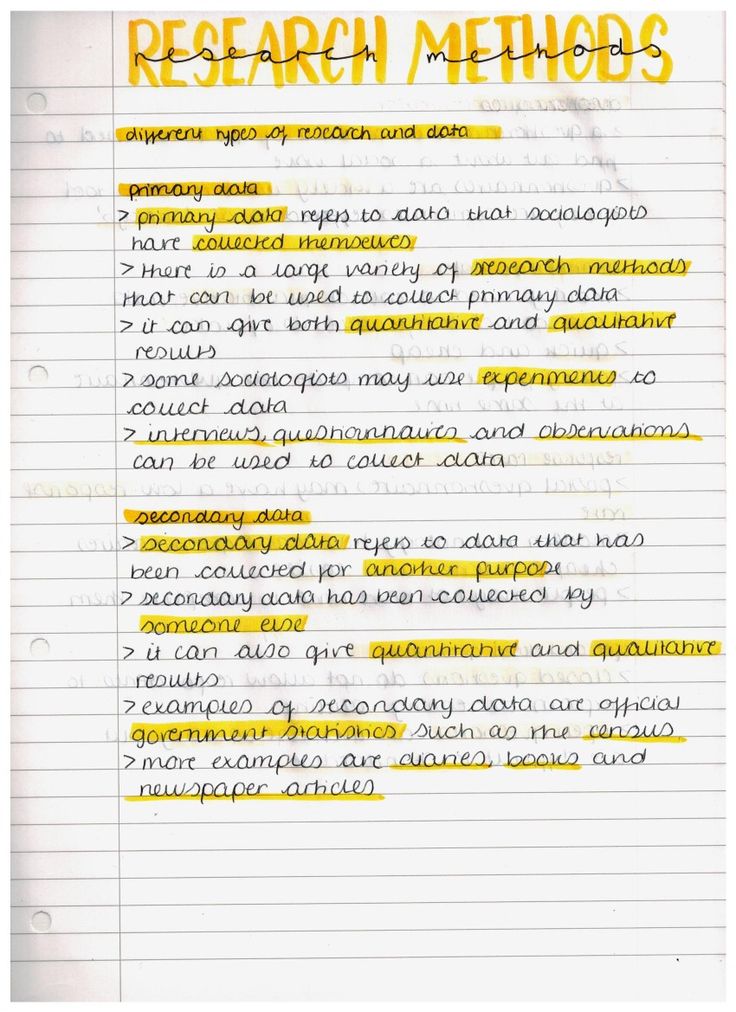 RESEARCH METHODS
research methods
different types of research and data
primary data
> primary data refers to data that sociologists
have collected themselves
> there is a large variety of research methods
that can be used to collect primary data
> it can give both quantitative and qualitative
results
> some sociologists may use experiments to
collect data
> interviews, questionnaires and observations
can be used to collect data
secondary data
> secondary data refers to data that has
been collected for another purpose
> secondary data has been collected by
someone else
> it can also give quantitative and qualitative
results
> examples of secondary data are official
government statistics such as the census
> more examples are diaries, books and
newspaper articles